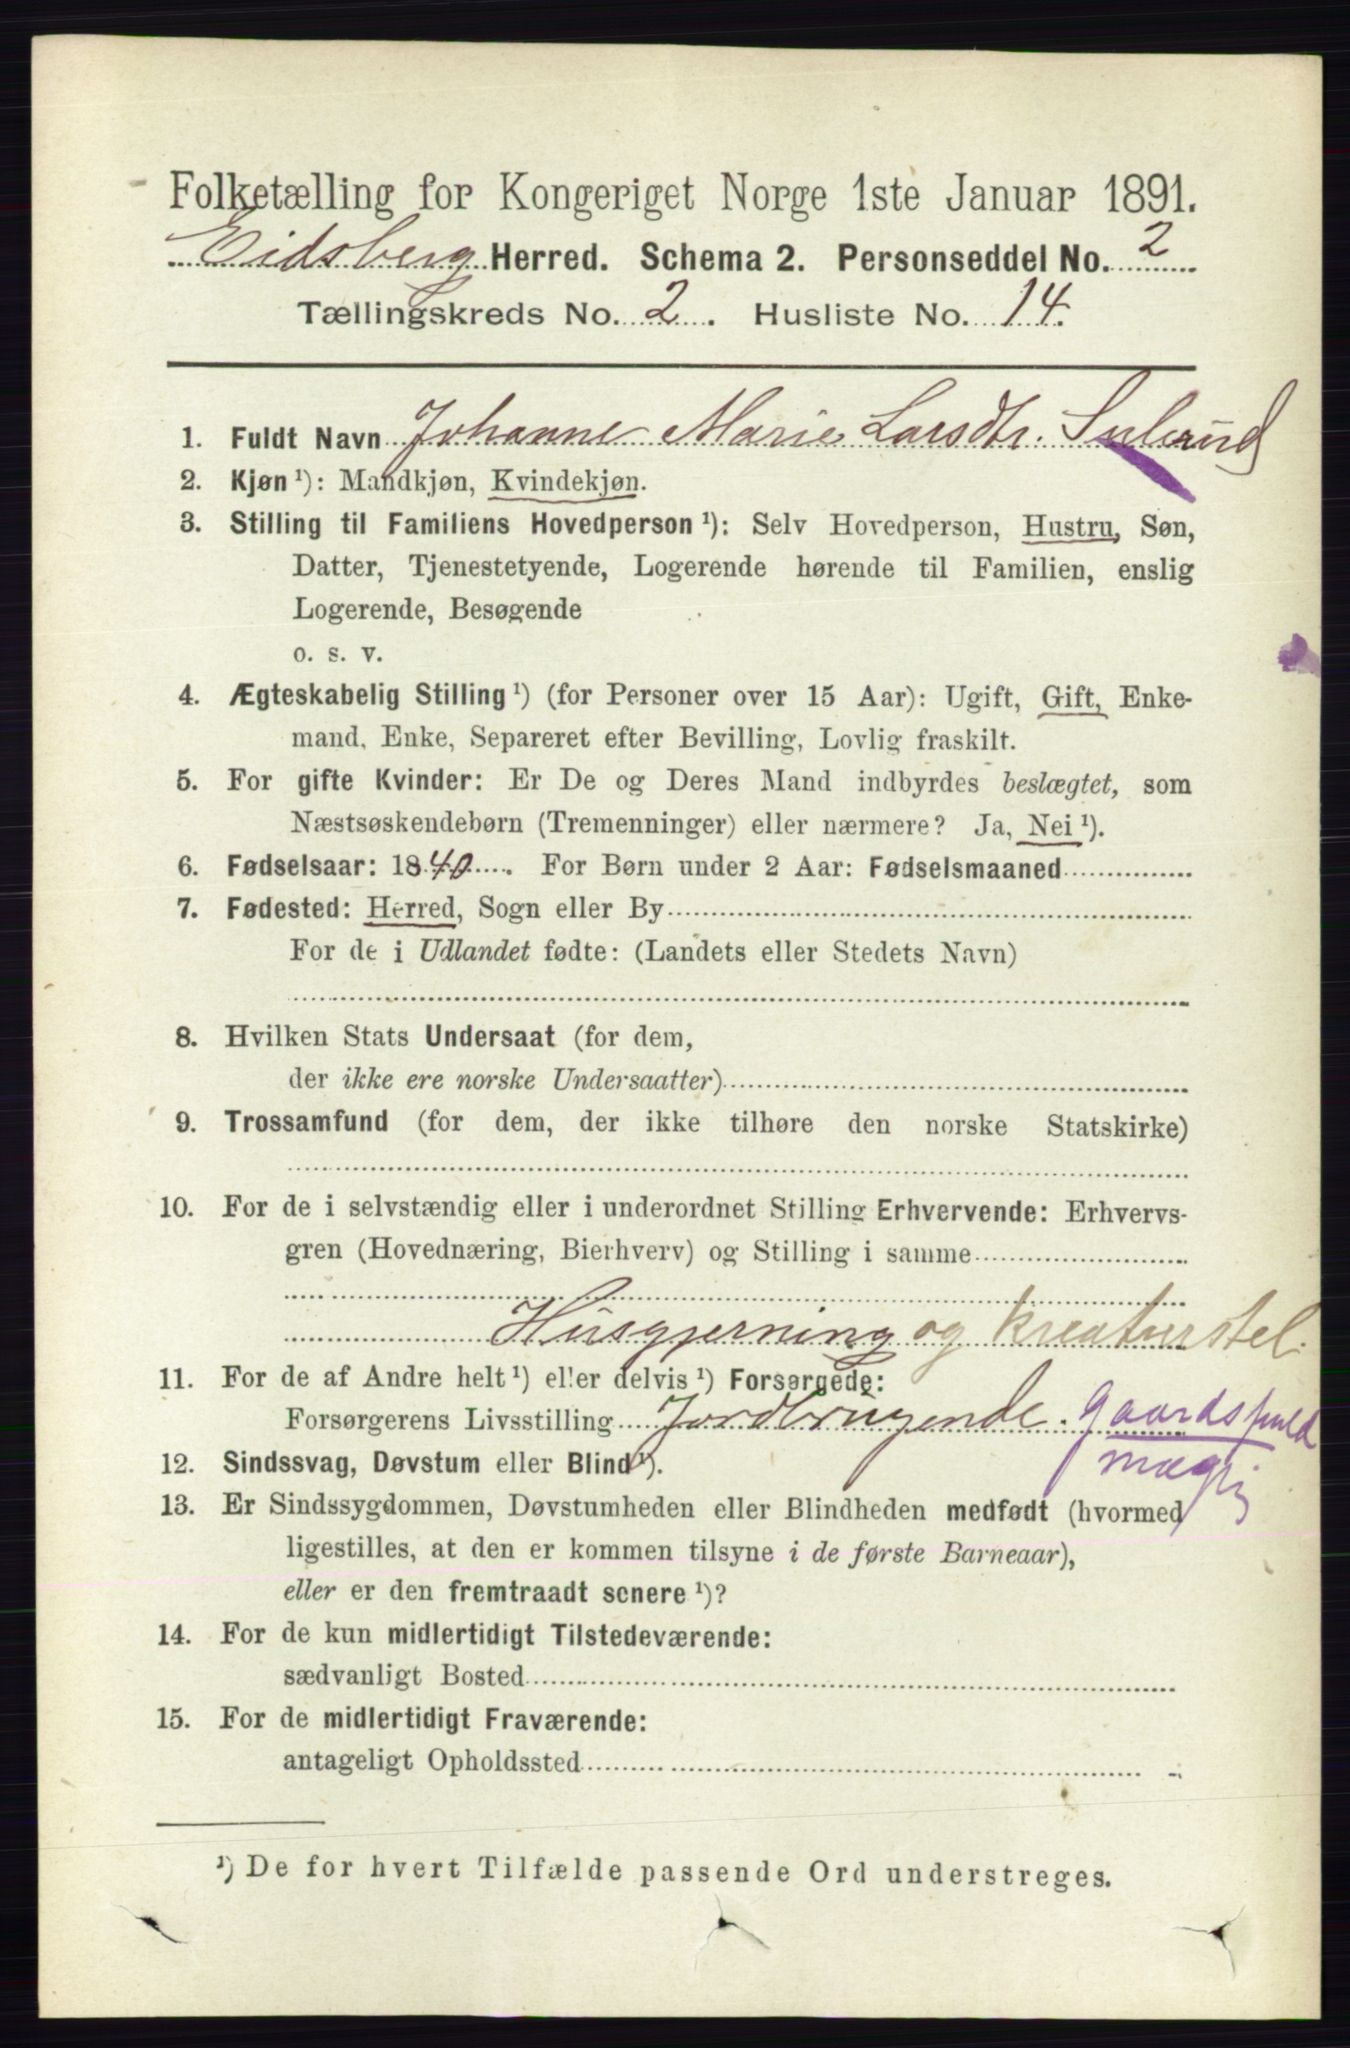 Folketælling for Kongeriget Norge 1ste Januar 1891.
Eidsberg Herred. Schema 2. Personseddel No. 2
Tællingskreds No. 2. Husliste No. 14.
1. Fuldt Navn Johanne Marie Larsdtr. Sulerud
2. Kjøn ¹): Mandkjøn, Kvindekjøn.
3. Stilling til Familiens Hovedperson ¹): Selv Hovedperson, Hustru, Søn,
Datter, Tjenestetyende, Logerende hørende til Familien, enslig
Logerende, Besøgende
o. s. v.
4. Ægteskabelig Stilling ¹) (for Personer over 15 Aar): Ugift, Gift, Enke-
mand, Enke, Separeret efter Bevilling, Lovlig fraskilt.
5. For gifte Kvinder: Er De og Deres Mand indbyrdes beslægtet, som
Næstsøskendebørn (Tremenninger) eller nærmere? Ja, Nei ¹).
6. Fødselsaar: 1840. For Børn under 2 Aar: Fødselsmaaned
7. Fødested: Herred, Sogn eller By
For de i Udlandet fødte: (Landets eller Stedets Navn)
8. Hvilken Stats Undersaat (for dem,
der ikke ere norske Undersaatter)
9. Trossamfund (for dem, der ikke tilhøre den norske Statskirke)
10. For de i selvstændig eller i underordnet Stilling Erhvervende: Erhvervs-
gren (Hovednæring, Bierhverv) og Stilling i samme
Husgjerning og kreaturstel.
11. For de af Andre helt ¹) eller delvis ¹) Forsørgede:
Forsørgerens Livsstilling Jordbrugende. gaardsfuld
mægtig
12. Sindssvag, Døvstum eller Blind ¹).
13. Er Sindssygdommen, Døvstumheden eller Blindheden medfødt (hvormed
ligestilles, at den er kommen tilsyne i de første Barneaar),
eller er den fremtraadt senere ¹)?
14. For de kun midlertidigt Tilstedeværende:
sædvanligt Bosted
15. For de midlertidigt Fraværende:
antageligt Opholdssted
¹) De for hvert Tilfælde passende Ord understreges.